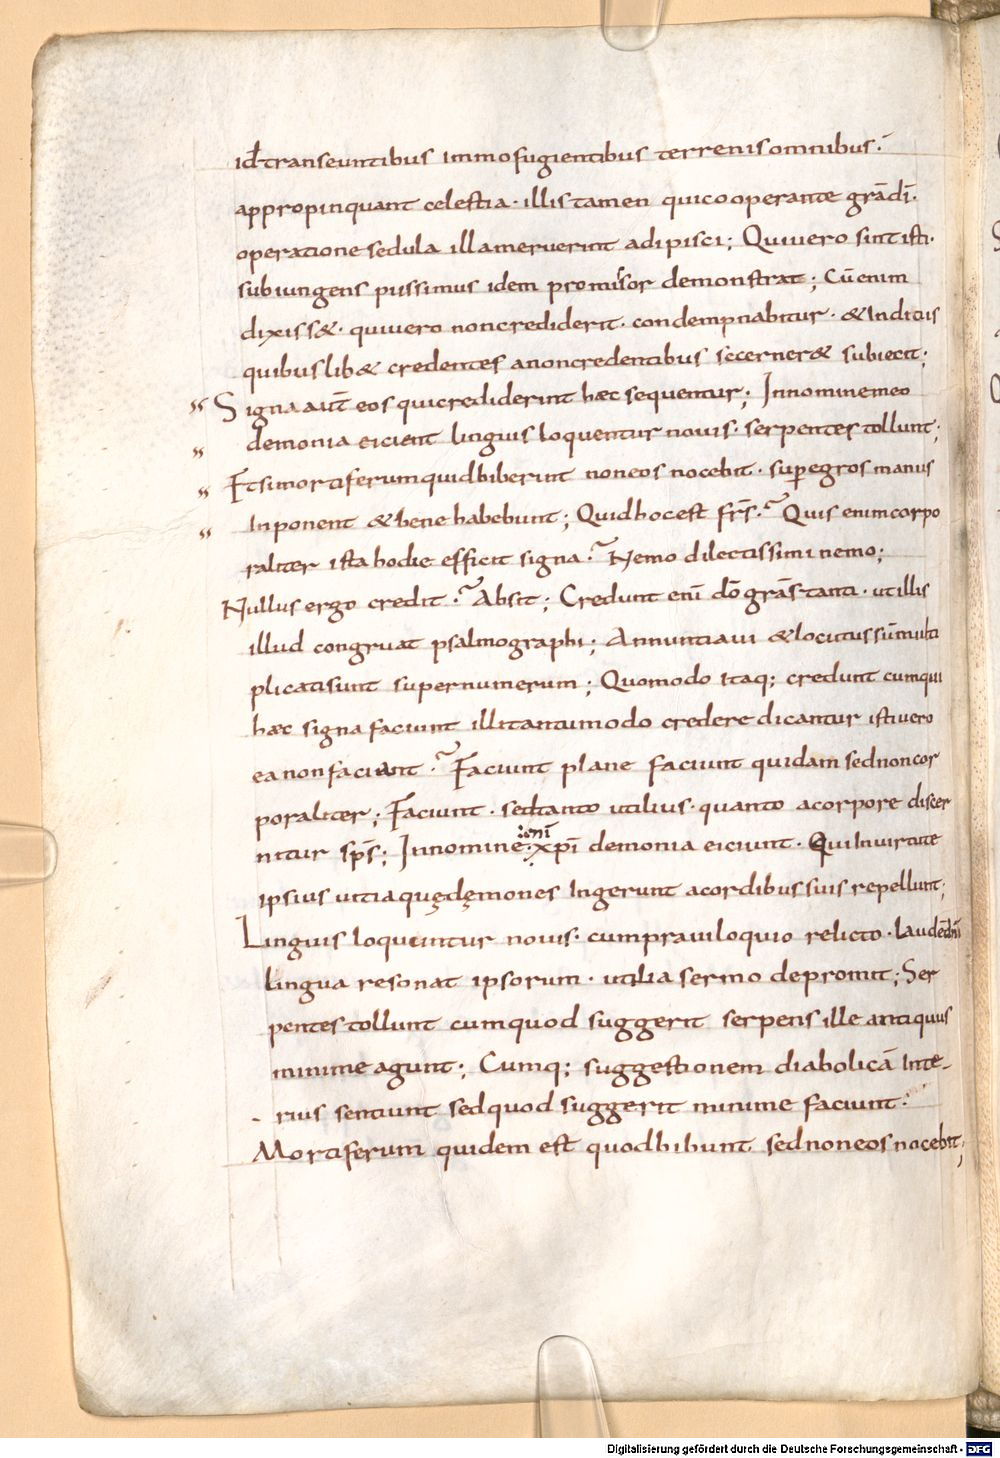 id÷transeuntibus immofugientibus terrenisomnibus.
appropinquant celestia · illis tamen quicooperante gr̄adī·
operatione sedula illameruerint adipisci; Quivero sintisti·
subiungens piissimus idem promissor demonstrat; Cūenim
dixiss& · quivero noncrediderit · condempnabitur · &Indicus
quibuslib& credentes anoncredentibus sccerner& subiecit;
" Signa aūt eos quicrediderint hæc sequentur; Innominemeo
" demonia eicient linguis loquentur novis · serpentes tollunt;
" Etsimortiferumquidbiberint noneos nocebit · superegros manus
" Inponent &bene habebunt; Quidhocest fr̄s·? Quis enimcorpo
raliter ista hodie efficit signa ·? Nemo dilectissimi nemo;
Nullus ergo credit ·? Absit; Credunt enī dō grās tanti · utillis
illud congruat psalmographi; Annuntiavi &locutussūmulti
plicatisunt supernumerum; Quomodo itaq; credunt cumqui
hæc signa faciunt illitantumodo credere dicantur istivero
ea nonfaciunt ·? Faciunt plane faciunt quidam sednoncor
poraliter; Faciunt · sedtanto utilius · quanto acorpore discer
nitur sp̄s; Innomine · xp̄i demonia eiciunt · QuiInvirtute
ipsius vitiaquędęmones Ingerunt acordibussuis repellunt;
Linguis loquuntur novis · cumpraviloquio relicto · laudēdnī
lingua resonat ipsorum · utilia sermo depromit; Ser
pentes tollunt cumquod suggerit serpens ille antiquus
minime agunt; Cumq; suggestionem diabolicā Inte-
- rius sentiunt sedquod suggerit minime faciunt·
Mortiferum quidem est quodbibunt sednoneos nocebit;
Digitalisierung gefördert durch die Deutsche Forschungsgemeinschaft - DFG